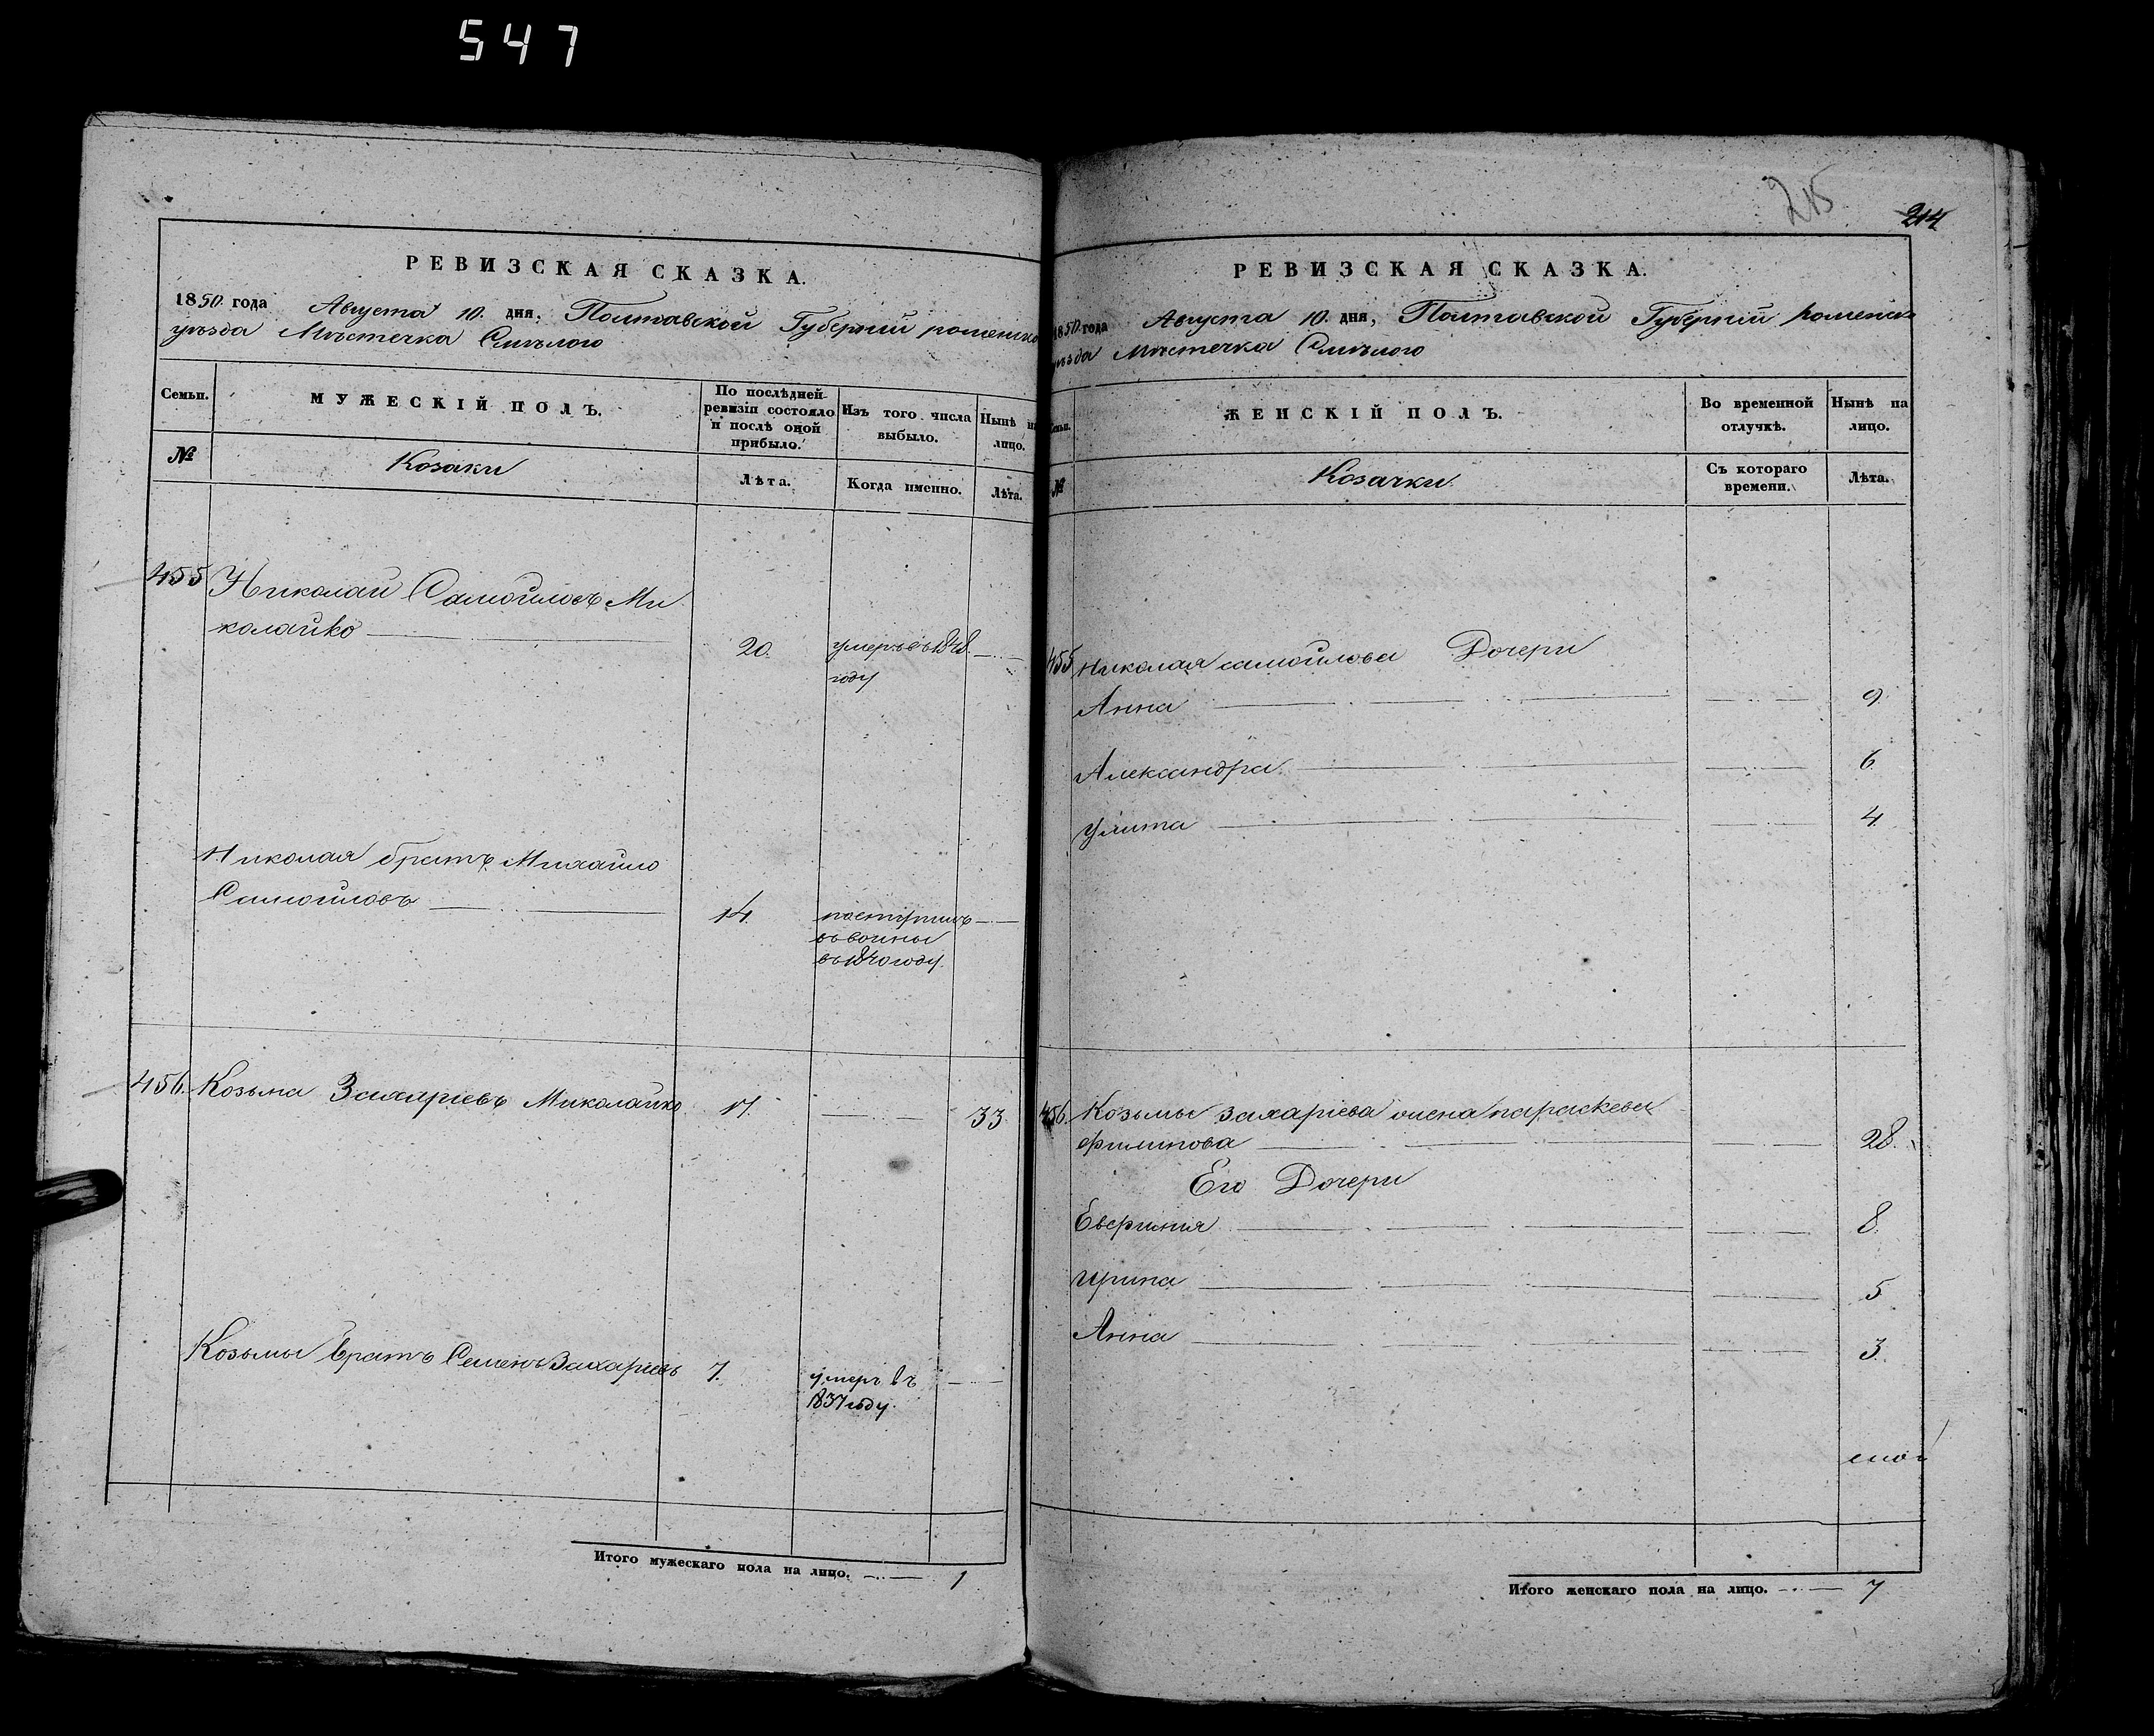 547
РЕВИЗСКАЯ СКАЗКА.
1850 года Августа 10. дня, Полтавской Губерніи роменско
уѣзда Мѣстечка Смѣлого
Семьи.
МУЖЕСКІЙ ПОЛЪ.
По послѣдней
ревизіи состояло
и послѣ оной
прибыло.
Изъ того числа
выбыло.
Нынѣ на
лицо.
№
Козаки
Лѣта.
Когда именно.
Лѣта.
455 Николай Самойловъ Ми
колайко
20. умеръ въ 1848.
году
Николая братъ Михайло
Самойловъ
14. поступилъ
въ воины
въ 1840 году.
456. Козьма Захаріевъ Миколайко 17. 33
Козьмы братъ Семенъ Захаріевъ 7. умеръ въ
1837 году.
Итого мужескаго пола на лицо. 1
215
214
РЕВИЗСКАЯ СКАЗКА.
1850 года Августа 10. дня, Полтавской Губерніи роменск
уѣзда Мѣстечка Смѣлого
ЖЕНСКІЙ ПОЛЪ.
Во временной
отлучкѣ.
Нынѣ на
лицо.
№
Козачки
Съ котораго
времени.
Лѣта.
455 Николая самойлова Дочери
Анна 9.
Александра 6.
Улита 4.
456. Козьмы захаріева жена параскева
филипова 28.
Его Дочери
Евфимия 8.
ирина 5
Анна 3.
Итого женскаго пола на лицо. 7